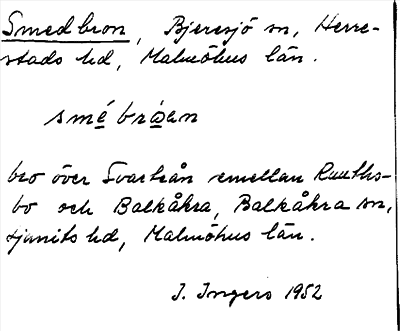 Smedbron, Bjeresjö sn, Herre-
stads hd, Malmöhus län.
smé brọ́ən
bro över Svarteån emellan Ruuths-
bo och Balkåkra, Balkåkra sn,
Ljunits hd, Malmöhus län.
I. Ingers 1952